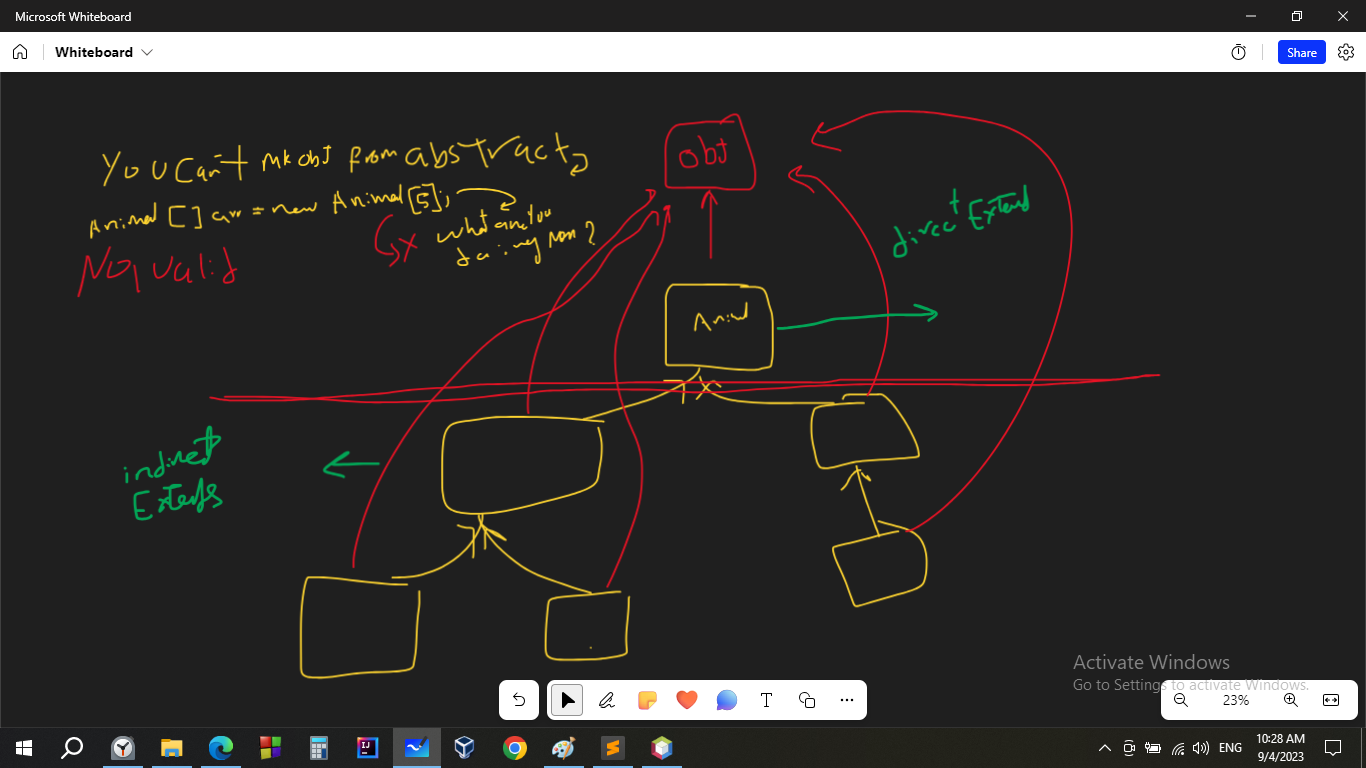 Microsoft Whiteboard
Whiteboard
Share
You Can't mk obj from abstract
Animal [] arr = new Animal[5];
what are you
doing man?
x
No, valid
obj
Animl
direct Extend
indirect
Extends
Activate Windows
Go to Settings to activate Windows.
23%
ENG
10:28 AM
9/4/2023